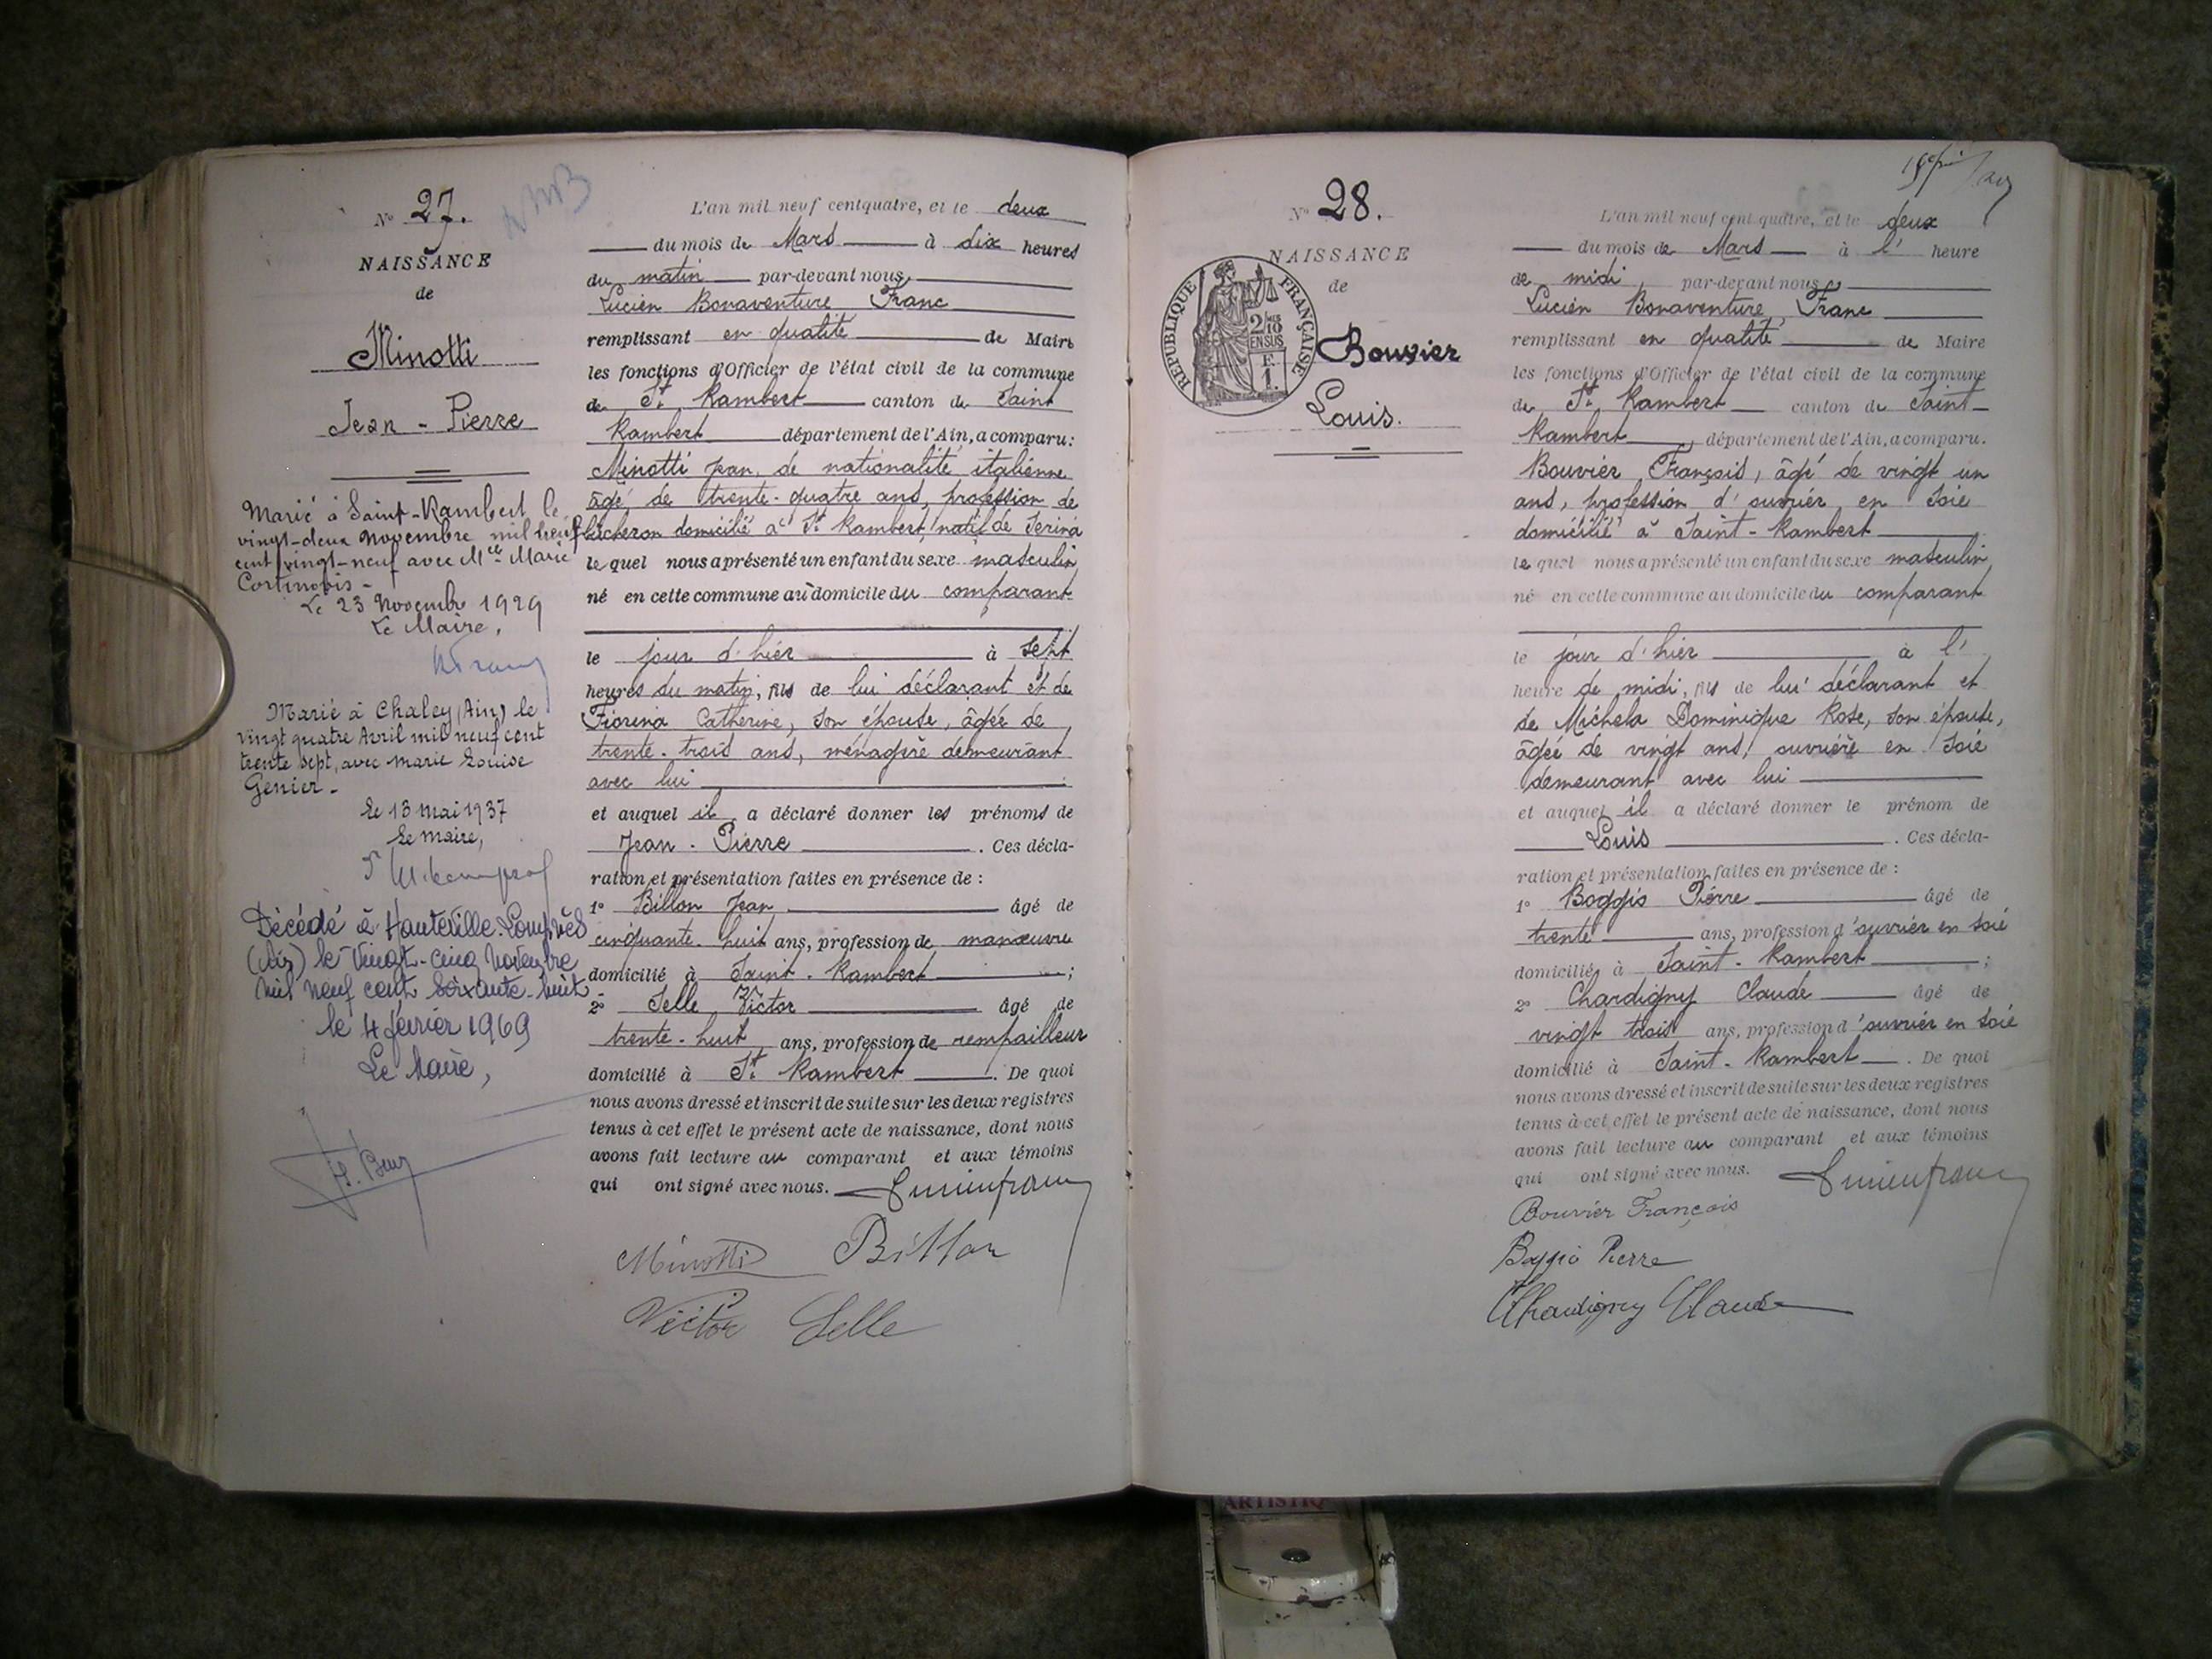 N° 27.
NAISSANCE
de
Minotti
Jean - Pierre
Marié à Saint-Rambert le
vingt-deux novembre mil neuf
cent vingt-neuf avec Mlle Marie
Cortinovis -
Le 23 Novembre 1929
Le Maire,
Marié à Chaley (Ain) le
vingt quatre Avril mil neuf cent
trente sept, avec Marie Louise
Genier -
Le 13 mai 1937
Le maire,
Décédé à Hauteville-Lompnès
(Ain) le vingt-cinq Novembre
mil neuf cent soixante-huit
le 4 février 1969
Le Maire,
L'an mil neuf cent quatre, et le deux
du mois de Mars à dix heures
du matin par-devant nous,
Lucien Bonaventure Franc
remplissant en qualité de Maire
les fonctions d'Officier de l'état civil de la commune
de St. Rambert canton de Saint
Rambert département de l'Ain, a comparu:
Minotti Jean, de nationalité italienne
âgé de trente-quatre ans, profession de
bûcheron domicilié à St Rambert, natif de Serina
lequel nous a présenté un enfant du sexe masculin
né en cette commune au domicile du comparant
le jour d'hier à sept
heures du matin, fils de lui déclarant et de
Fiorina Catherine, son épouse, âgée de
trente-trois ans, ménagère demeurant
avec lui
et auquel il a déclaré donner les prénoms de
Jean - Pierre. Ces décla-
ration et présentation faites en présence de :
1° Billon Jean âgé de
cinquante-huit ans, profession de manœuvre
domicilié à Saint-Rambert ;
2° Selle Victor âgé de
trente-huit ans, profession de rempailleur
domicilié à St. Rambert. De quoi
nous avons dressé et inscrit de suite sur les deux registres
tenus à cet effet le présent acte de naissance, dont nous
avons fait lecture au comparant et aux témoins
qui ont signé avec nous.
Minotti Billon
Victor Selle
N° 28.
NAISSANCE
de
RÉPUBLIQUE FRANÇAISE
2/10
EN SUS
F.
1.
Bouvier
Louis.
L'an mil neuf cent quatre, et le deux
du mois de Mars à l' heure
de midi par-devant nous
Lucien Bonaventure Franc
remplissant en qualité de Maire
les fonctions d'Officier de l'état civil de la commune
de St. Rambert canton de Saint-
Rambert, département de l'Ain, a comparu.
Bouvier François, âgé de vingt un
ans, profession d'ouvrier en soie
domicilié à Saint-Rambert
lequel nous a présenté un enfant du sexe masculin,
né en cette commune au domicile du comparant
le jour d'hier à l'
heure de midi, fils de lui déclarant et
de Michela Dominique Rose, son épouse,
âgée de vingt ans, ouvrière en soie
demeurant avec lui
et auquel il a déclaré donner le prénom de
Louis. Ces décla-
ration et présentation faites en présence de :
1° Boggio Pierre âgé de
trente ans, profession d'ouvrier en soie
domicilié à Saint-Rambert ;
2° Chardigny Claude âgé de
vingt trois ans, profession d'ouvrier en soie
domicilié à Saint-Rambert. De quoi
nous avons dressé et inscrit de suite sur les deux registres
tenus à cet effet le présent acte de naissance, dont nous
avons fait lecture au comparant et aux témoins
qui ont signé avec nous.
Bouvier François
Boggio Pierre
Chardigny Claude
ARTISTIQ